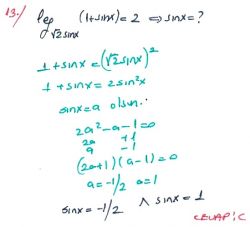 13./ log_{√2 sinx} (1+sinx) = 2 ⇒ sinx = ?
1 + sinx = (√2 sinx)²
1 + sinx = 2sin²x
sinx = a olsun.
2a² - a - 1 = 0
2a +1
a -1
(2a+1)(a-1) = 0
a = -1/2 a = 1
sinx = -1/2 ∧ sinx = 1
CEVAP: C